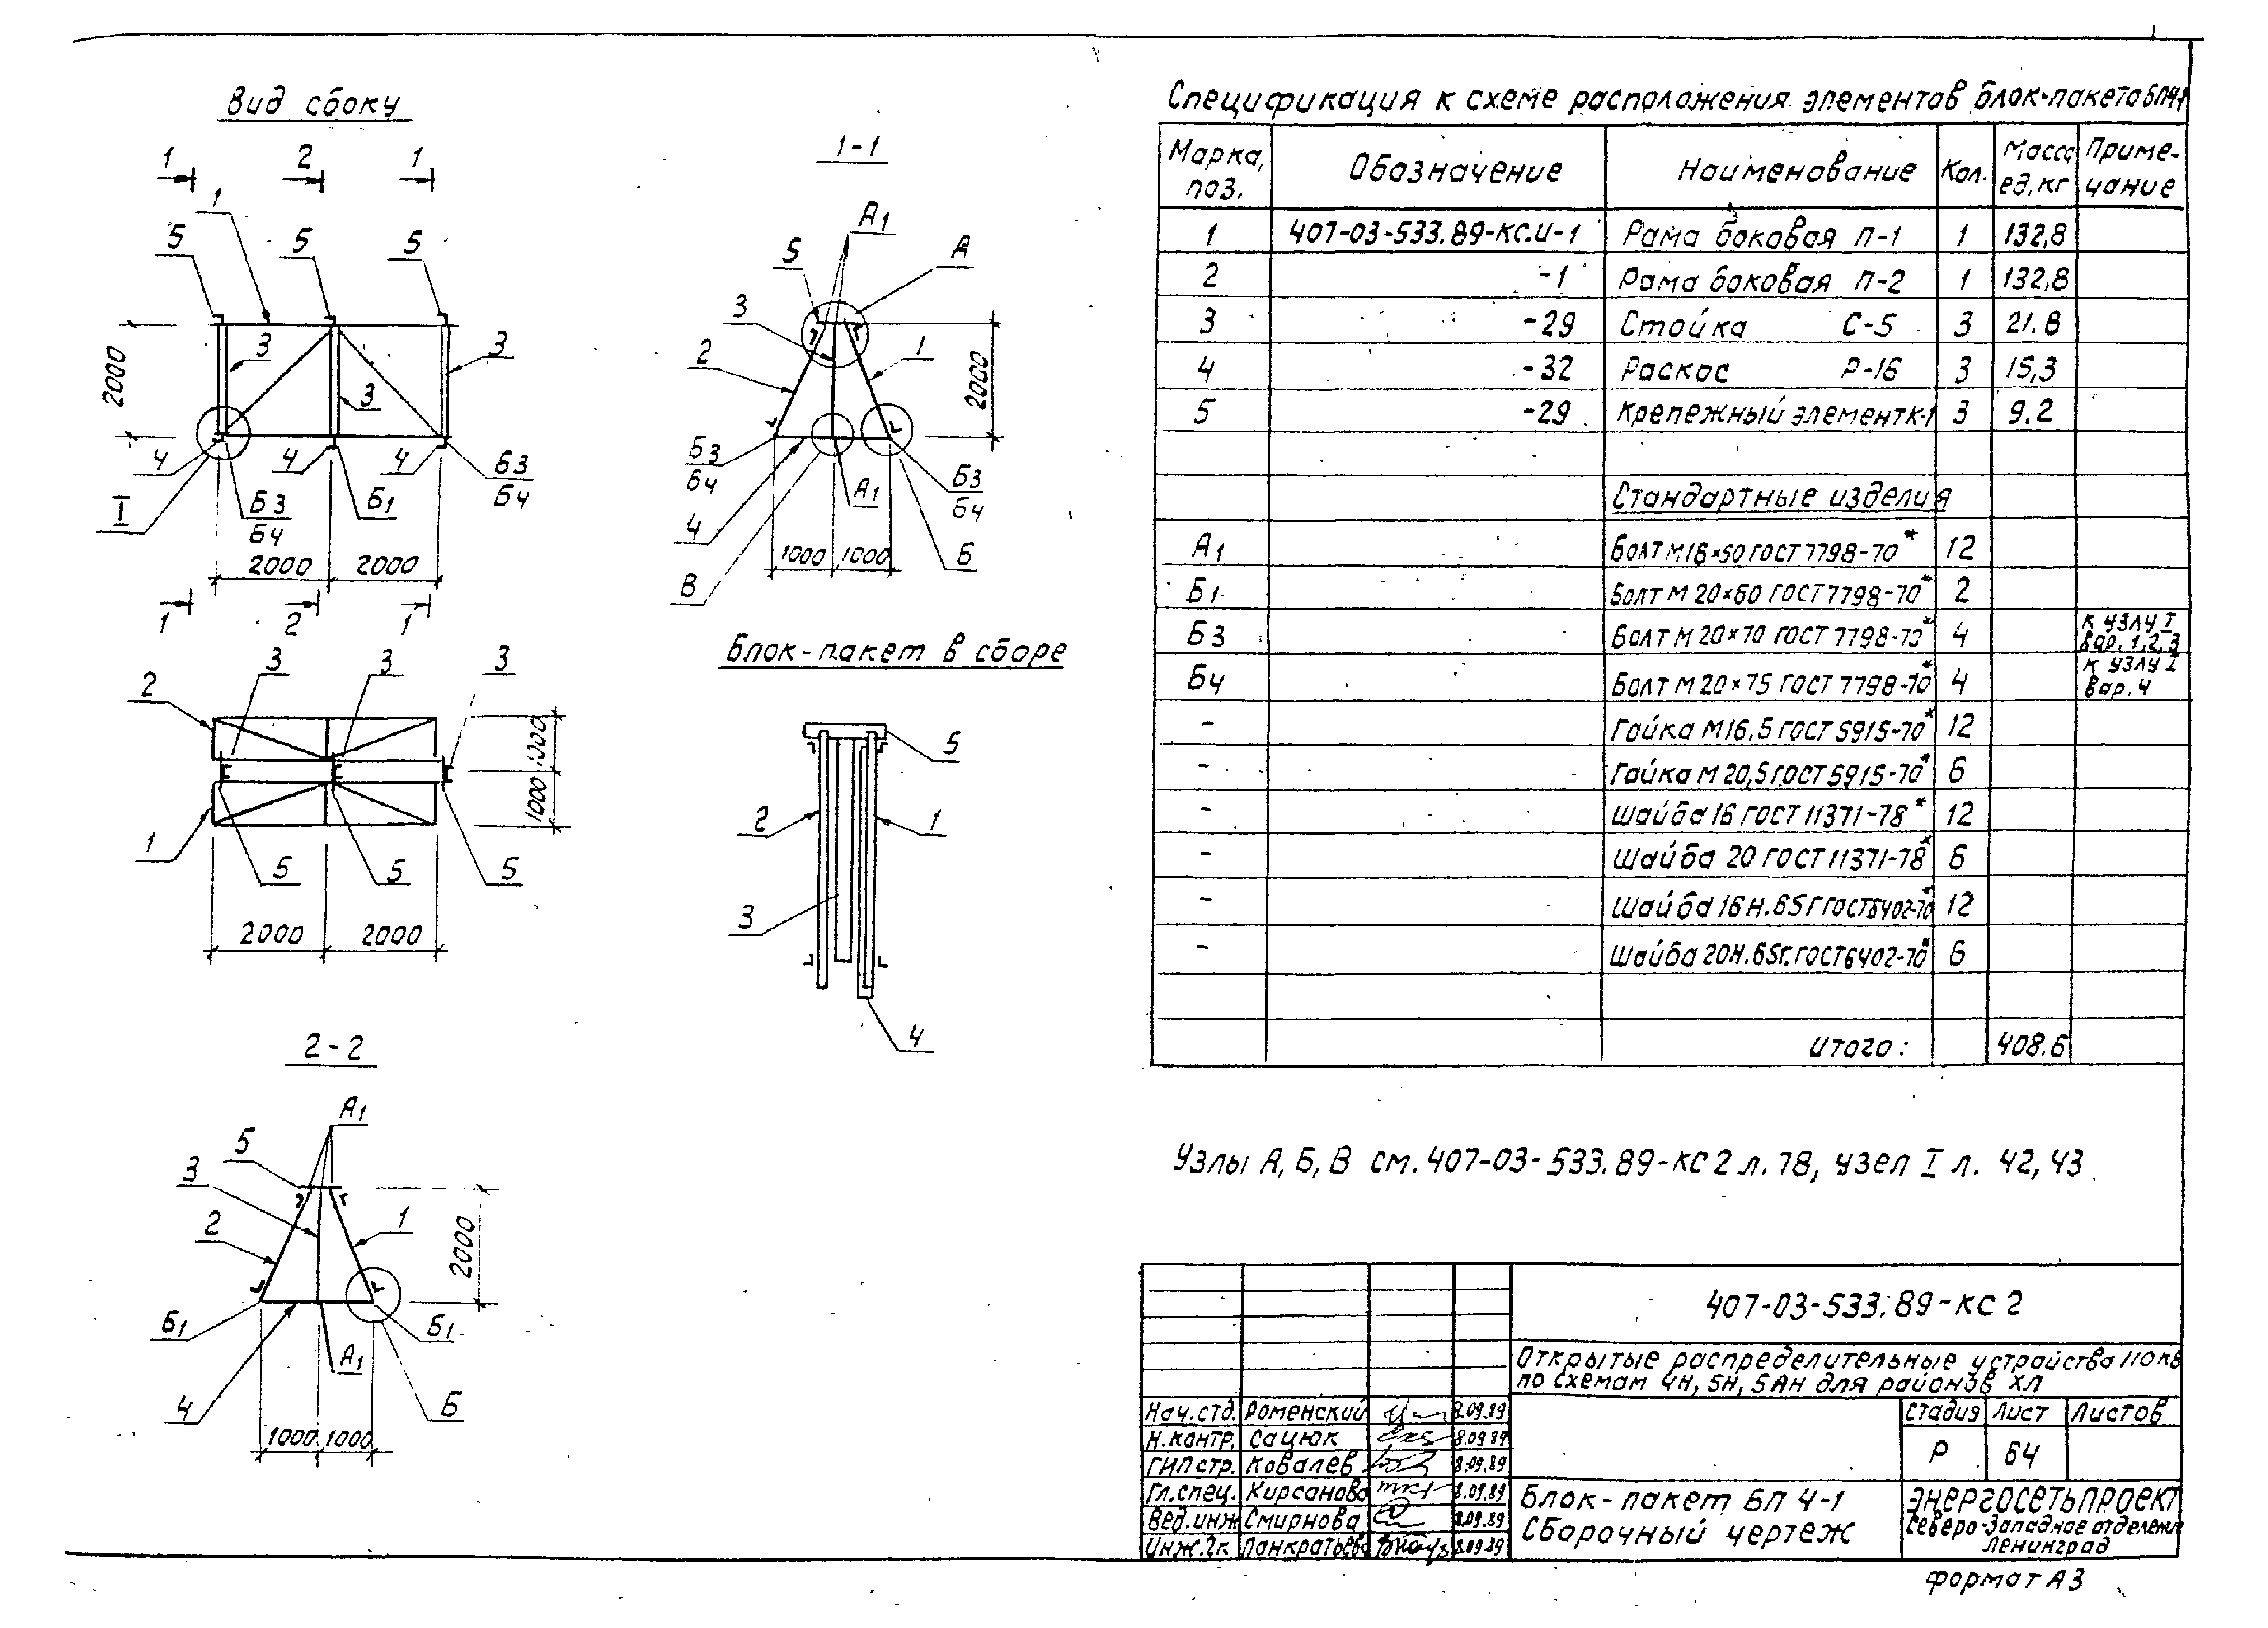 Вид сбоку
1 2 1
1
5 5 5
2000
3 3 3
4 4 4
Б3
Б4
Б1
Б3
Б4
I
2000 2000
1 2 1
3 3 3
2
1000
1000
1
5 5 5
2000 2000
2-2
А1
5
3
2
1
2000
Б1
Б1
А1
4
Б
1000 1000
1-1
А1
А
5
3
2
1
2000
Б3
Б4
Б3
Б4
А1
4
1000 1000
В
Б
Блок-пакет в сборе
5
2
1
3
4
Спецификация к схеме расположения элементов блок-пакета БП4-1
Марка, поз. Обозначение Наименование Кол. Масса ед, кг Приме-чание
1 407-03-533.89-КС.И-1 Рама боковая П-1 1 132,8
2 -1 Рама боковая П-2 1 132,8
3 -29 Стойка С-5 3 21.8
4 -32 Раскос Р-16 3 15,3
5 -29 Крепежный элемент К-1 3 9.2
Стандартные изделия
А1 Болт М16×50 ГОСТ 7798-70* 12
Б1 Болт М 20×60 ГОСТ 7798-70* 2
Б3 Болт М 20×70 ГОСТ 7798-70* 4 к узлу I вар. 1,2,3
Б4 Болт М 20×75 ГОСТ 7798-70* 4 к узлу I вар. 4
- Гайка М16,5 ГОСТ 5915-70* 12
- Гайка М 20,5 ГОСТ 5915-70* 6
- Шайба 16 ГОСТ 11371-78* 12
- Шайба 20 ГОСТ 11371-78* 6
- Шайба 16Н.65Г ГОСТ 6402-70* 12
- Шайба 20Н.65Г. ГОСТ 6402-70* 6
Итого: 408.6
Узлы А, Б, В см. 407-03-533.89-КС 2 л. 78, узел I л. 42, 43
407-03-533.89-КС 2
Открытые распределительные устройства 110 кв
по схемам 4Н, 5Н, 5АН для районов ХЛ
Нач.стд. Роменский 8.09.89
Н.контр. Сацюк 8.09.89
ГИП стр. Ковалев 8.09.89
Гл.спец. Кирсанова 8.09.89
Вед.инж Смирнова 8.09.89
Инж.2к Панкратьева 8.09.89
Стадия Лист Листов
Р 64
Блок-пакет БП 4-1
Сборочный чертеж
ЭНЕРГОСЕТЬПРОЕКТ
Северо-Западное отделение
Ленинград
формат А3